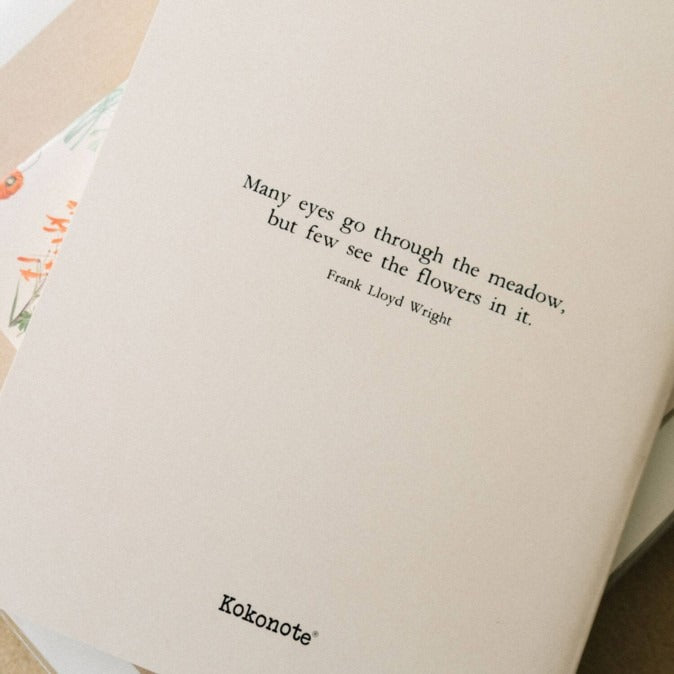 Many eyes go through the meadow,
but few see the flowers in it.
Frank Lloyd Wright
Kokonote®